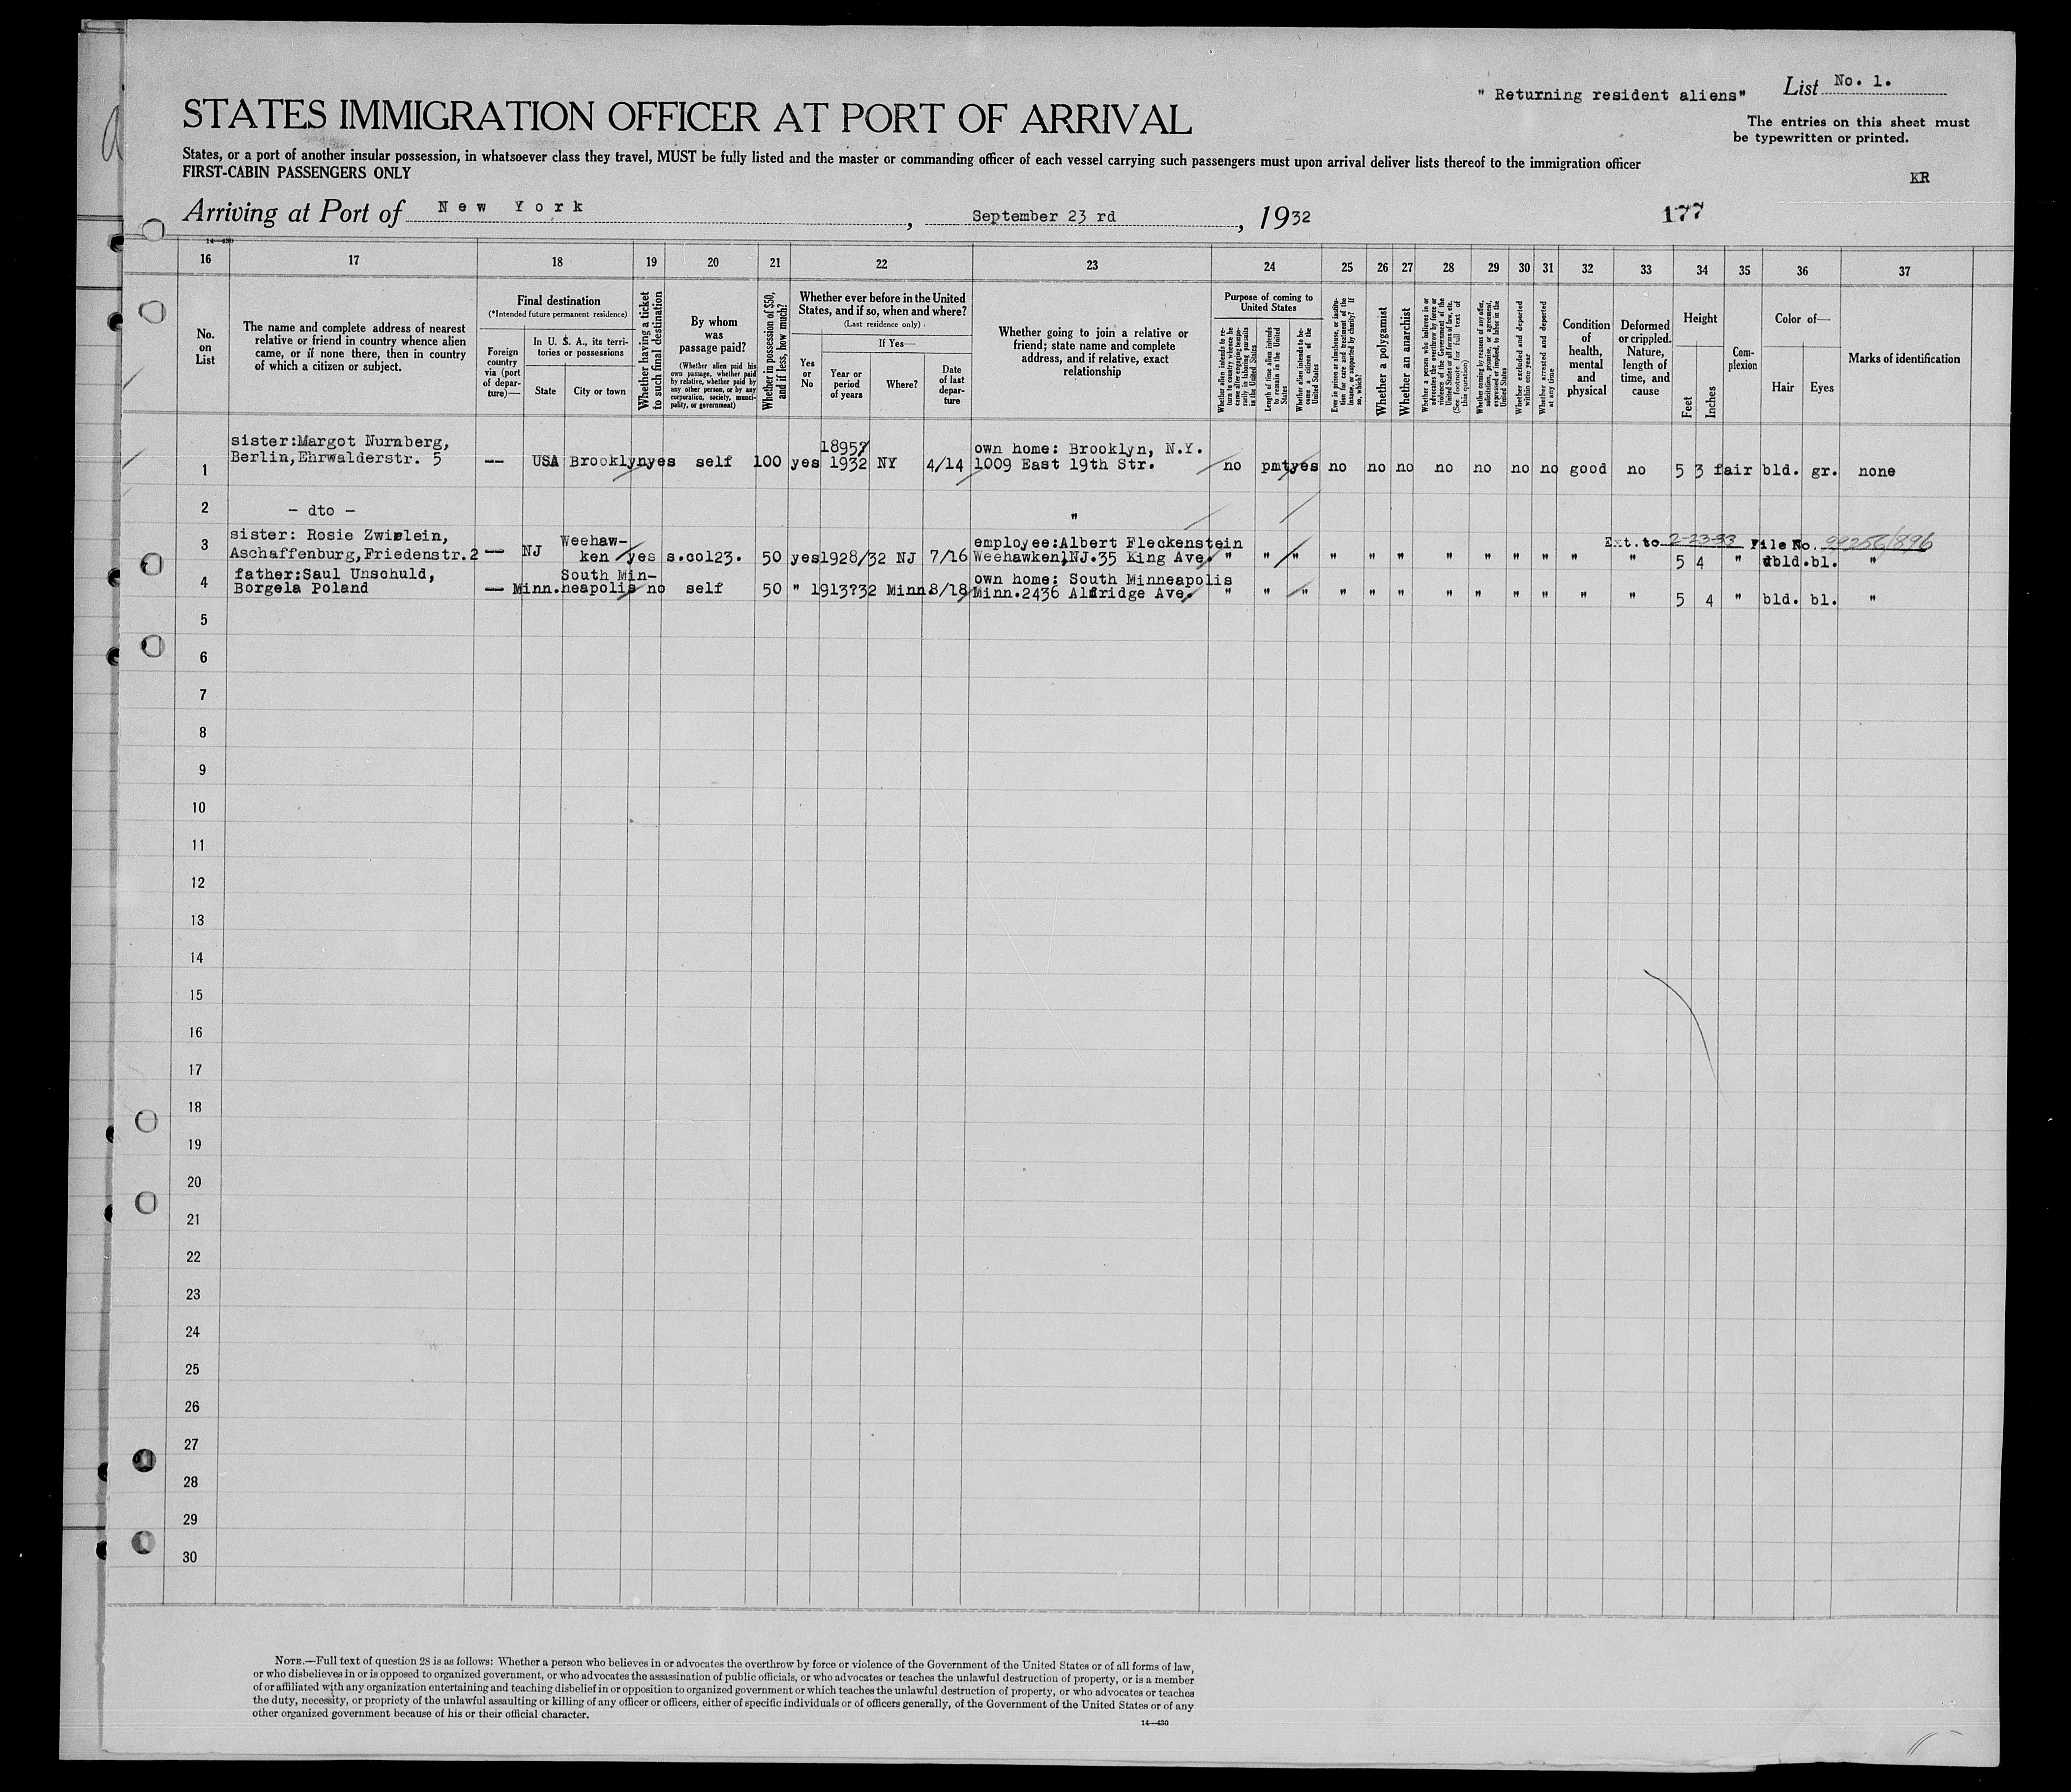 " Returning resident aliens"
List No. 1.
STATES IMMIGRATION OFFICER AT PORT OF ARRIVAL
The entries on this sheet must
be typewritten or printed.
States, or a port of another insular possession, in whatsoever class they travel, MUST be fully listed and the master or commanding officer of each vessel carrying such passengers must upon arrival deliver lists thereof to the immigration officer
FIRST-CABIN PASSENGERS ONLY
KR
Arriving at Port of New York, September 23 rd, 1932
177
14—430
16 17 18 19 20 21 22 23 24 25 26 27 28 29 30 31 32 33 34 35 36 37
No.
on
List
The name and complete address of nearest
relative or friend in country whence alien
came, or if none there, then in country
of which a citizen or subject.
Final destination
(*Intended future permanent residence)
Foreign
country
via (port
of depar-
ture)—
In U. S. A., its terri-
tories or possessions
State
City or town
Whether having a ticket
to such final destination
By whom
was
passage paid?
(Whether alien paid his
own passage, whether paid
by relative, whether paid by
any other person, or by any
corporation, society, munici-
pality, or government)
Whether in possession of $50,
and if less, how much?
Whether ever before in the United
States, and if so, when and where?
(Last residence only)
Yes
or
No
If Yes—
Year or
period
of years
Where?
Date
of last
depar-
ture
Whether going to join a relative or
friend; state name and complete
address, and if relative, exact
relationship
Purpose of coming to
United States
Whether alien intends to re-
turn to country whence he
came after engaging tempo-
rarily in laboring pursuits
in the United States
Length of time alien intends
to remain in the United
States
Whether alien intends to be-
come a citizen of the
United States
Ever in prison or almshouse, or institu-
tion for care and treatment of the
insane, or supported by charity? If
so, which?
Whether a polygamist
Whether an anarchist
Whether a person who believes in or
advocates the overthrow by force or
violence of the Government of the
United States or all forms of law, etc.
(See footnote for full text of
this question)
Whether coming by reason of any offer,
solicitation, promise, or agreement,
expressed or implied, to labor in the
United States
Whether excluded and deported
within one year
Whether arrested and deported
at any time
Condition
of
health,
mental
and
physical
Deformed
or crippled.
Nature,
length of
time, and
cause
Height
Feet
Inches
Com-
plexion
Color of—
Hair
Eyes
Marks of identification
sister:Margot Nurnberg,
1 Berlin,Ehrwalderstr. 5 -- USA Brooklyn yes self 100 yes 1895? 1932 NY 4/14 own home: Brooklyn, N.Y.
1009 East 19th Str. no pmt yes no no no no no no no good no 5 3 fair bld. gr. none
2 - dto - "
Ext. to 2-23-33 File No. 99256/896
3 sister: Rosie Zwirlein,
Aschaffenburg,Friedenstr.2 -- NJ Weehaw-
ken yes s.col23. 50 yes 1928/32 NJ 7/16 employee:Albert Fleckenstein
Weehawken,NJ.35 King Ave. " " " " " " " " " " " " 5 4 " dbld.bl. "
4 father:Saul Unschuld,
Borgela Poland -- Minn. South Min-
neapolis no self 50 " 1913?32 Minn. 8/18 own home: South Minneapolis
Minn.2436 Aldridge Ave. " " " " " " " " " " " " 5 4 " bld. bl. "
5
6
7
8
9
10
11
12
13
14
15
16
17
18
19
20
21
22
23
24
25
26
27
28
29
30
NOTE.—Full text of question 28 is as follows: Whether a person who believes in or advocates the overthrow by force or violence of the Government of the United States or of all forms of law,
or who disbelieves in or is opposed to organized government, or who advocates the assassination of public officials, or who advocates or teaches the unlawful destruction of property, or is a member
of or affiliated with any organization entertaining and teaching disbelief in or opposition to organized government or which teaches the unlawful destruction of property, or who advocates or teaches
the duty, necessity, or propriety of the unlawful assaulting or killing of any officer or officers, either of specific individuals or of officers generally, of the Government of the United States or of any
other organized government because of his or their official character.
14—430